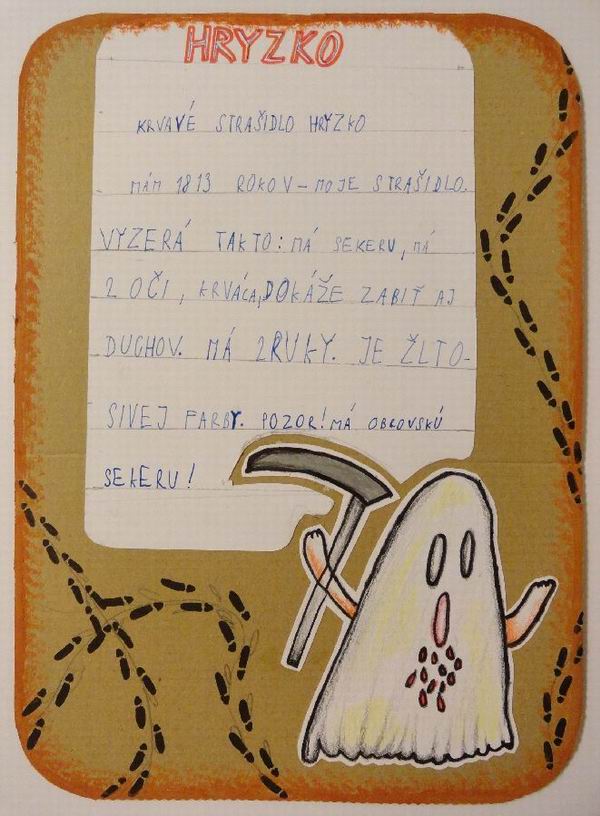 HRYZKO
KRVAVÉ STRAŠIDLO HRYZKO
MÁM 1813 ROKOV - MOJE STRAŠIDLO.
VYZERÁ TAKTO: MÁ SEKERU, MÁ
2 OČI, KRVÁCA, DOKÁŽE ZABIŤ AJ
DUCHOV. MÁ 2 RUKY. JE ŽLTO-
SIVEJ FARBY. POZOR! MÁ OBROVSKÚ
SEKERU!